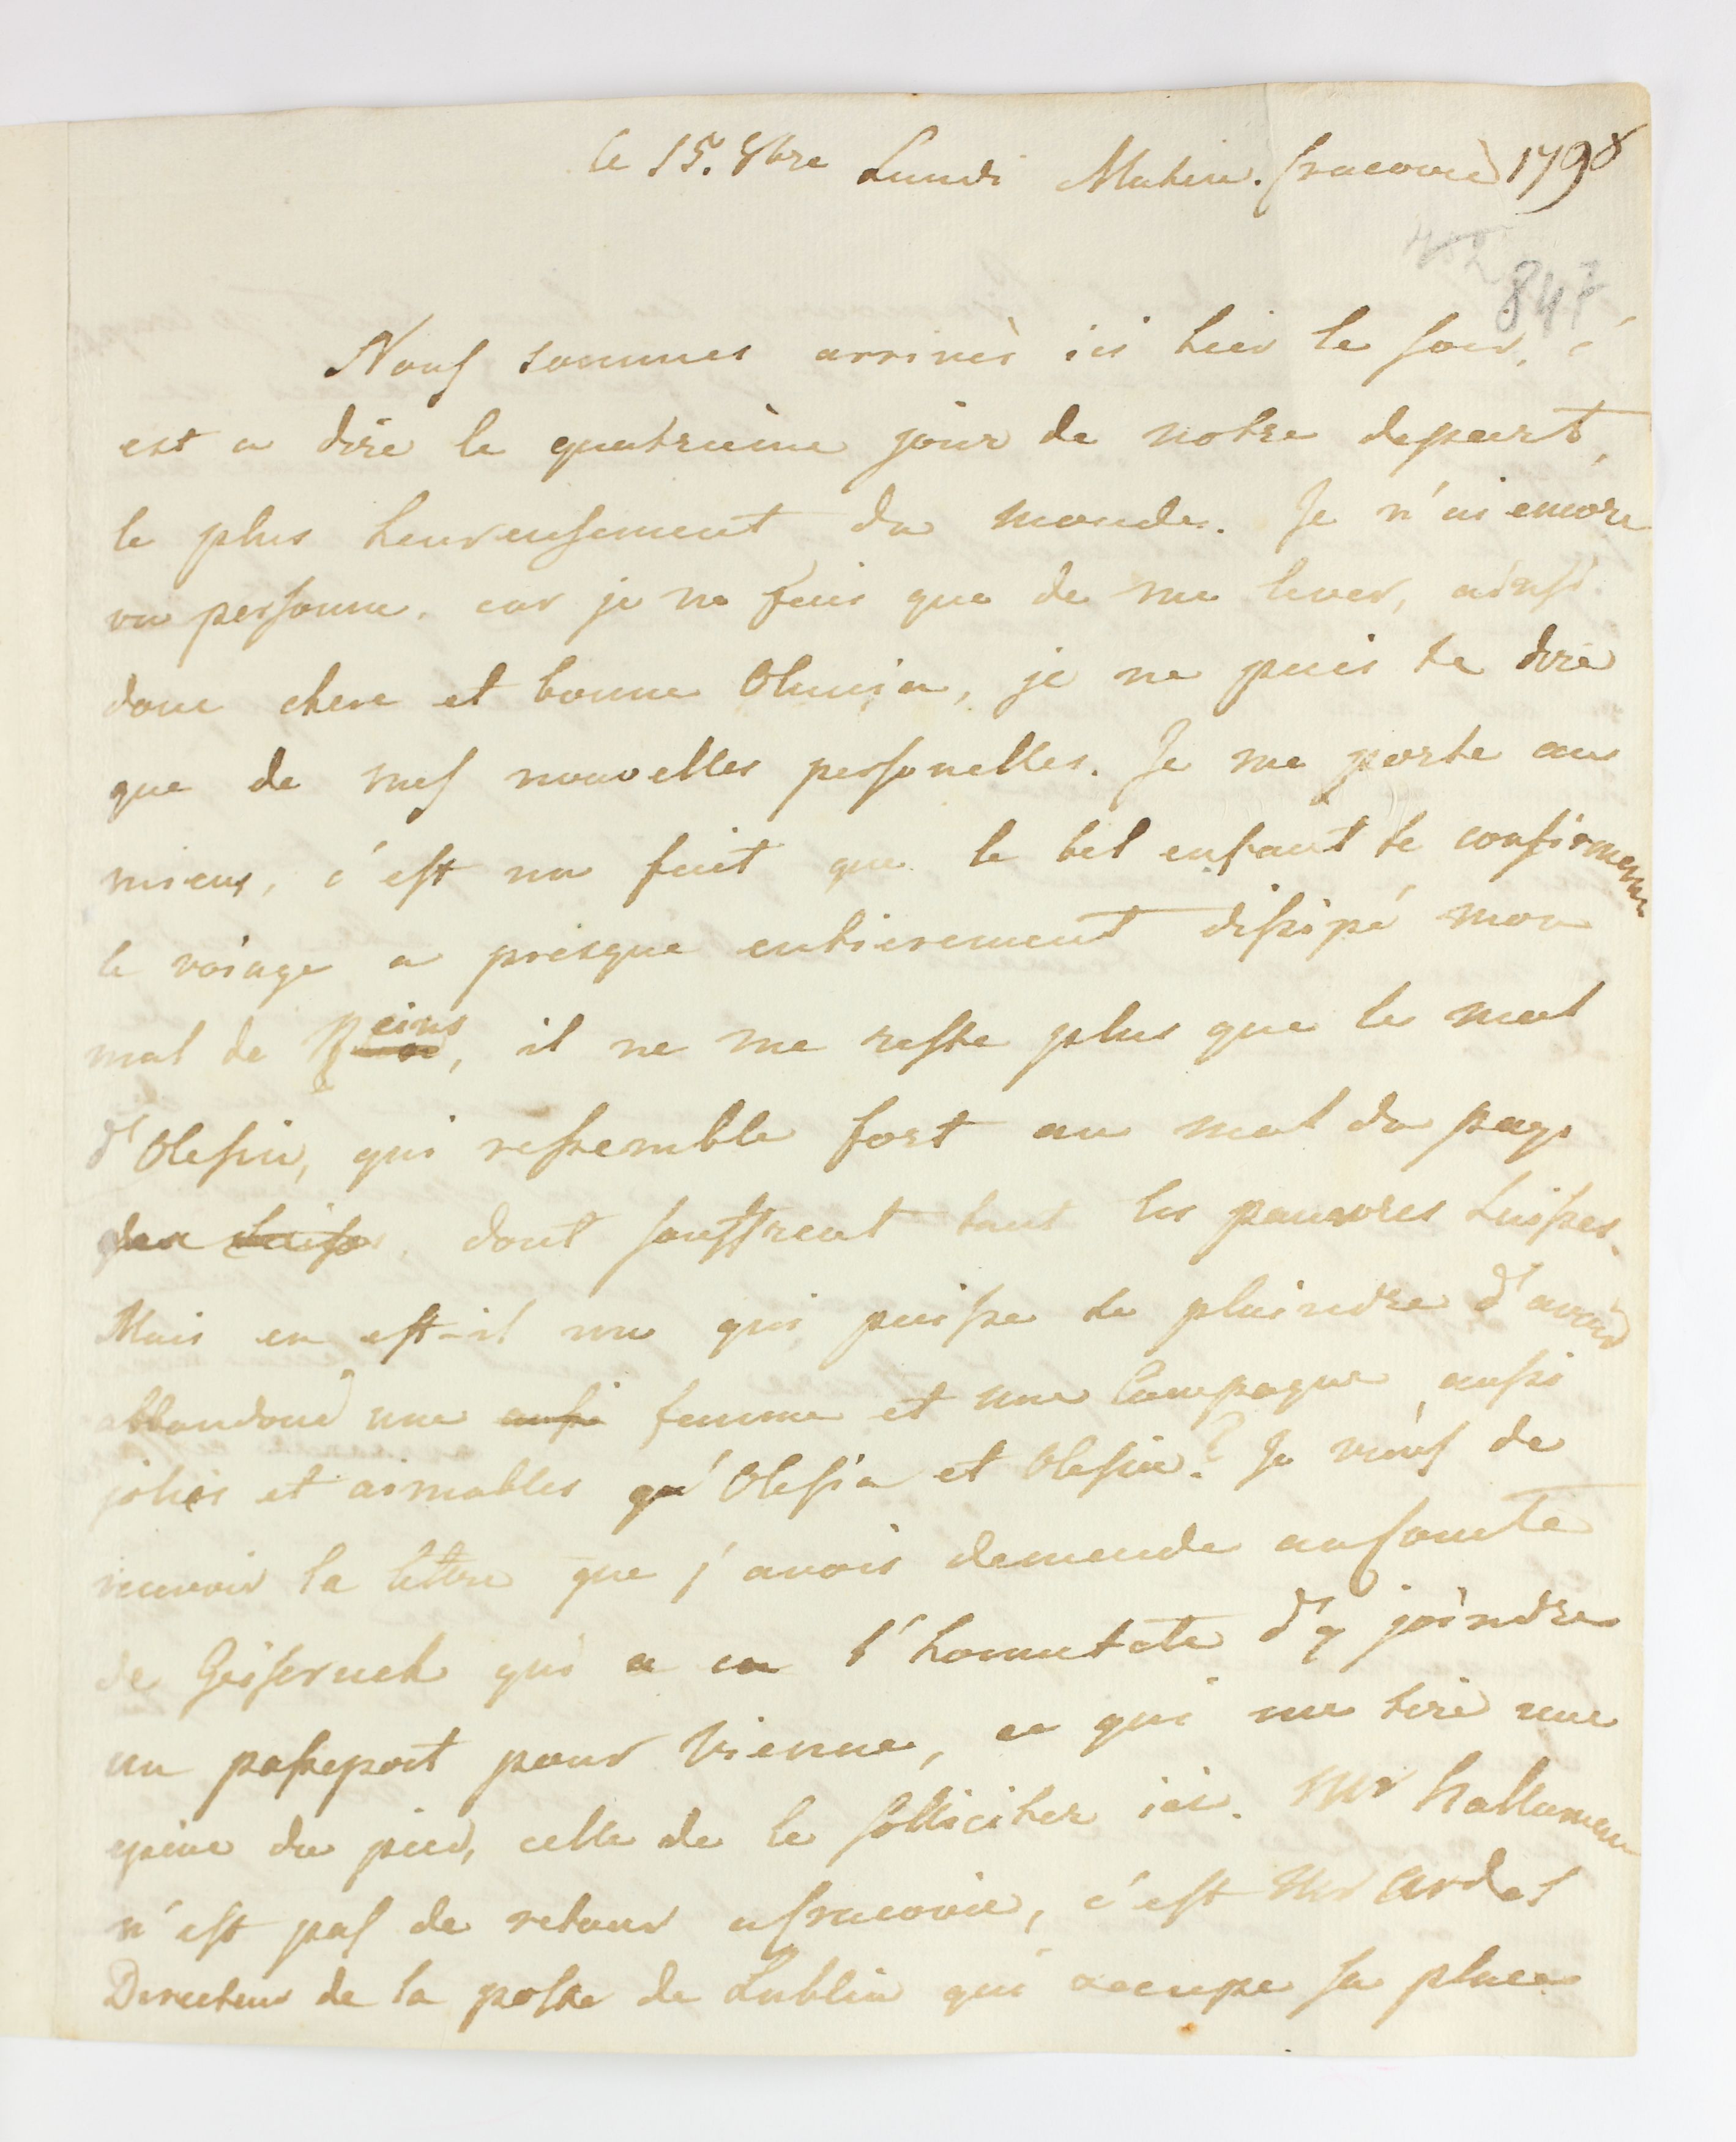 le 15. 8bre Lundi Matin. Cracovie 1798
847
Nous sommes arrivés ici hier le soir, c'
est a dire le quatrieme jour de notre depart,
le plus heureusement du monde. Je n'ai encore
vu personne. car je ne fais que de me lever, ainsi
donc chere et bonne Olunia, je ne puis te dire
que de mes nouvelles personelles. Je me porte au
mieux, c'est un fait que le bel enfant te confirmera
le voiage a presque entierement dissipé mon
mal de Reins, il ne me reste plus que le mal
d'Olesin, qui ressemble fort au mal du pays
dont souffrent tant les pauvres Suisses.
Mais en est-il un qui puisse se plaindre d'avoir
abbandoné une aussi femme et une Campagne aussi
jolies et aimables qu'Olesia et Olesin? Je viens de
recevoir la lettre que j'avois demendé au Comte
de Geisruck qui a eu l'honnetete d'y joindre
un passeport pour Vienne, ce qui me tire une
epine du pied, celle de le solliciter ici. Mr
n'est pas de retour a Cracovie, c'est Mr Ardet
Directeur de la poste de Lublin qui occupe sa place